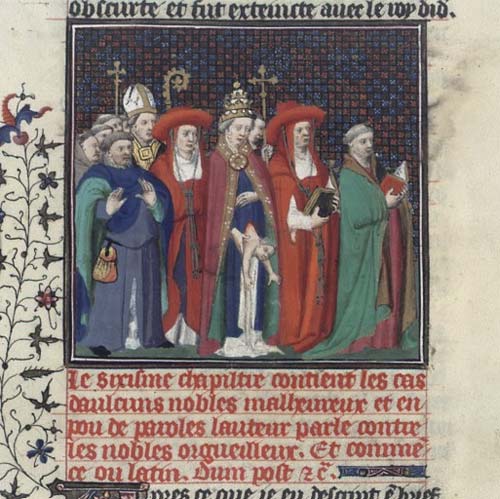 obscurte et fut exteincte auec le roy did.
Le sixisme chapiltre contient les cas
daulcuns nobles malheureux et en
pou de paroles lauteur parle contre
les nobles orgueilleux. Et comme͂
ce ou latin. Dum post ⁊ c̃.
Apres ce que ie en descript